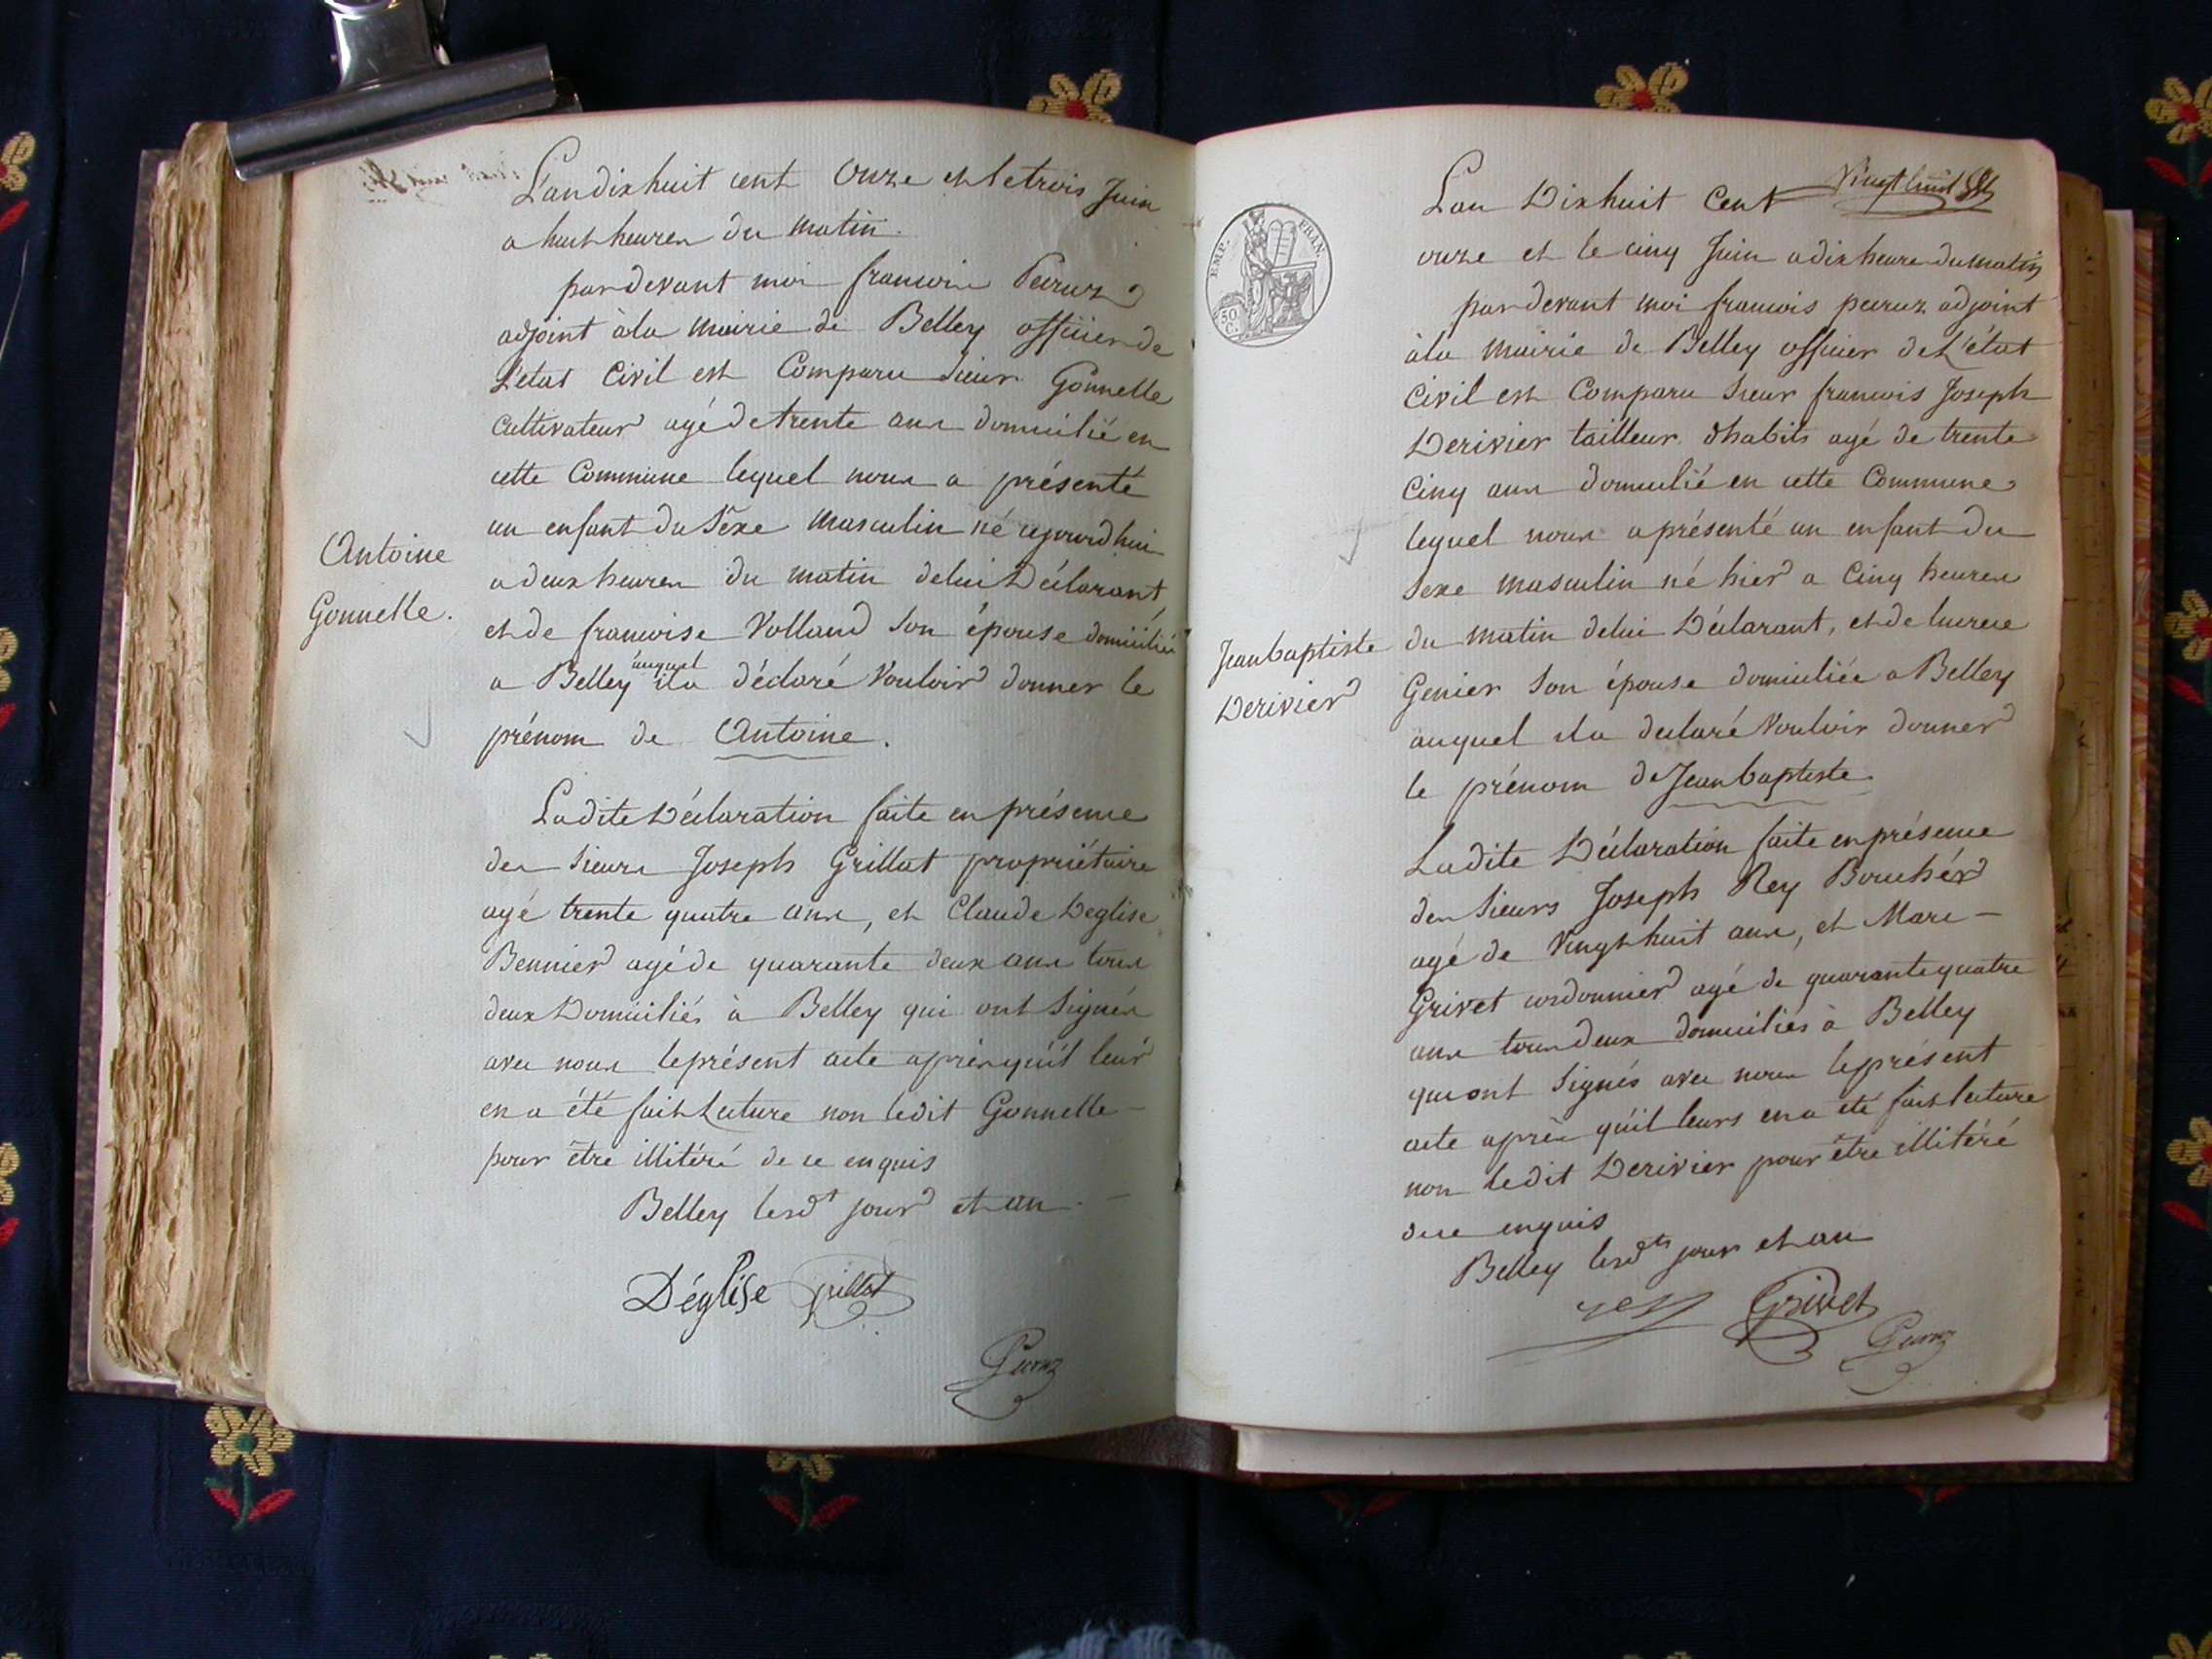 L'an dix huit cent Onze et le trois Juin
a huit heures du matin.
pardevant moi francois Peruz
adjoint à la mairie de Belley officier de
L'état Civil est Comparu Sieur Gonnelle
Cultivateur agé de trente ans domicilié en
cette Commune lequel nous a présenté
un enfant du Sexe masculin né cejourd'hui
a deux heures du matin de lui Déclarant
et de francoise Volland son épouse domiciliée
auquel
a Belley il a déclaré Vouloir donner le
prénom de Antoine.
Antoine
Gonnelle.
Ladite Déclaration faite en présence
des Sieurs Joseph Grillat propriétaire
agé trente quatre ans, et Claude Deglise
Bennier agé de quarante deux ans tous
deux Domiciliés à Belley qui ont Signés
avec nous le présent acte après qu'il leur
en a été fait Lecture non ledit Gonnelle
pour être illitéré de ce enquis
Belley lesdt jour et an.
Déglise Grillat
Peruz
Vingt huit
L'an Dix huit Cent
onze et le cinq Juin a dix heure du matin
pardevant moi francois peruz adjoint
à la mairie de Belley officier de L'état
Civil est Comparu Sieur francois Joseph
Derivier tailleur d'habits agé de trente
Cinq ans domicilié en cette Commune
lequel nous a présenté un enfant du
Sexe masculin né hier a Cinq heures
du matin de lui Déclarant, et de lucrece
Genier son épouse domiciliée a Belley
auquel il a declaré Vouloir donner
le prénom de Jean baptiste
Jean baptiste
Derivier
Ladite Déclaration faite en présence
des Sieurs Joseph Rey Bouchér
agé de Vingt huit ans, et Marc
Grivet cordonnier agé de quarante quatre
ans tous deux domiciliés à Belley
qui ont Signés avec nous le présent
acte après qu'il leurs en a été fait lecture
non ledit Derivier pour être illitéré
de ce enquis
Belley lesdts jour et an
rey Grivet
Peruz
EMP. FRAN.
50 C.